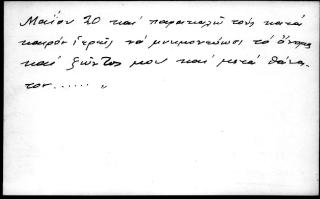 Μαΐου 20 καί παρακαλῶ τούς κατά
καιρόν ἱερεῖς νά μνημονεύωσι τό ὄνομα
καί ζῶντος μου καί μετά θάνα-
τον...... "